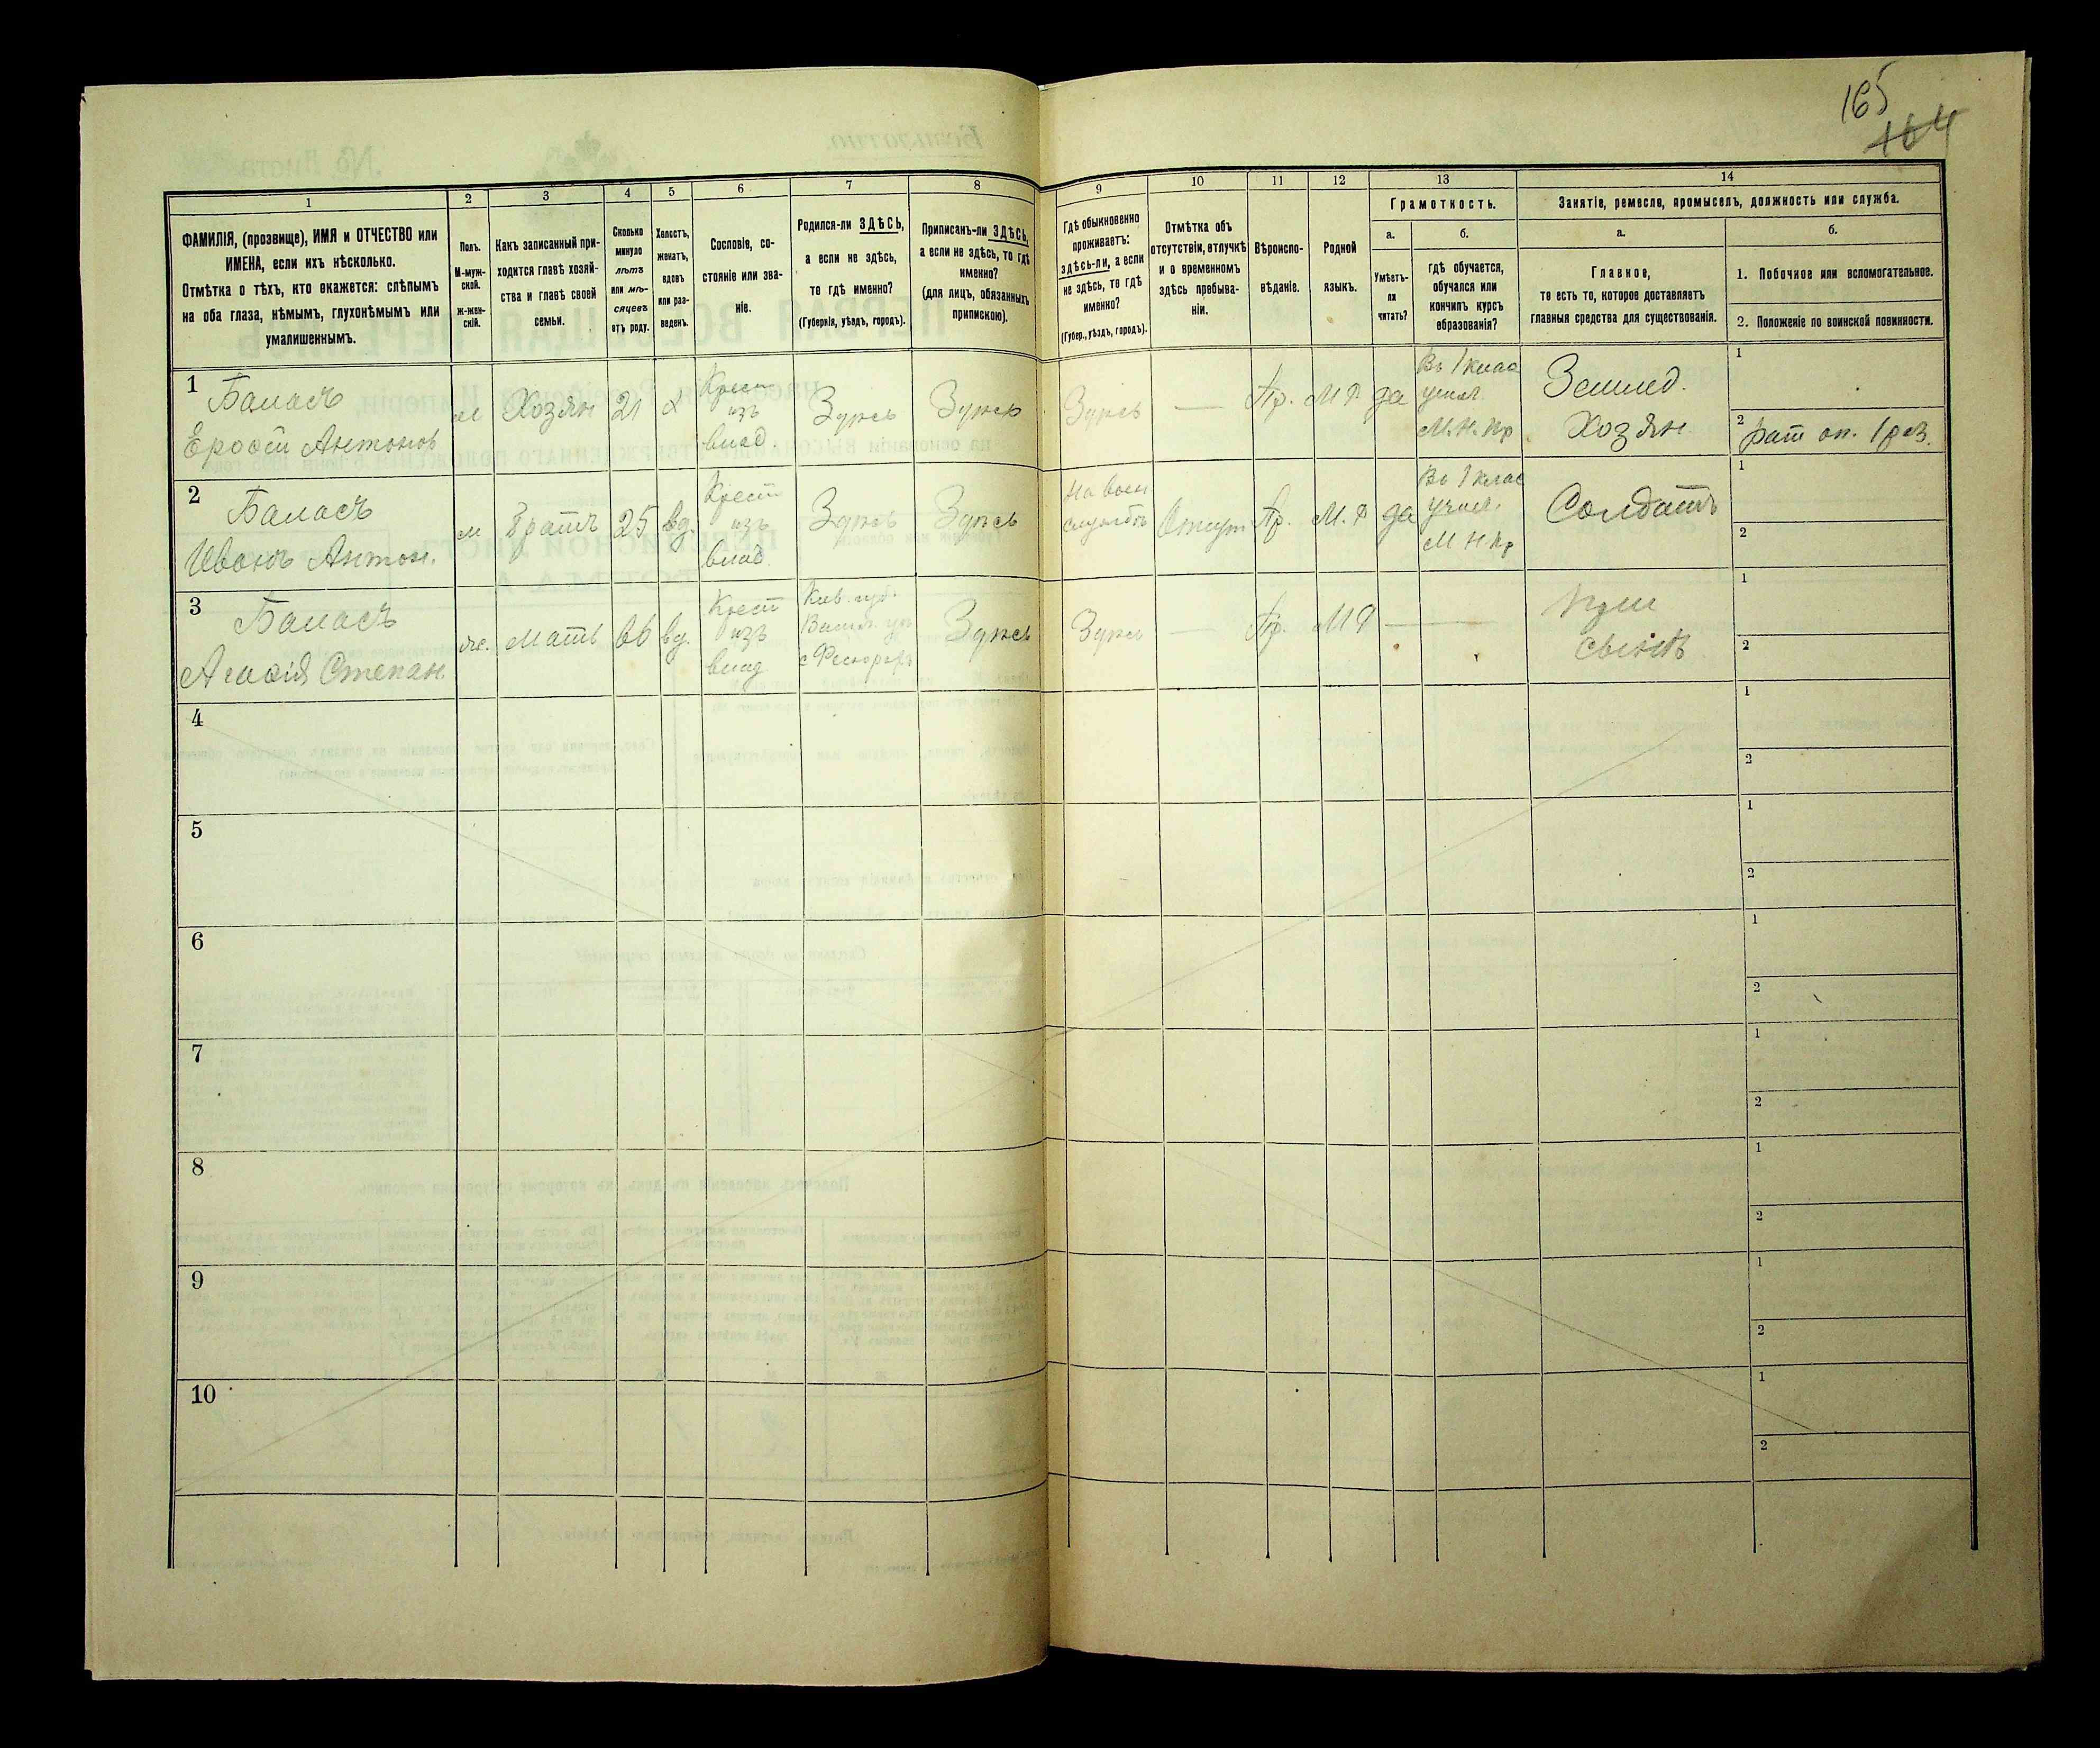 165
164
1
2
3
4
5
6
7
8
9
10
11
12
13
14
ФАМИЛІЯ, (прозвище), ИМЯ и ОТЧЕСТВО или
ИМЕНА, если ихъ нѣсколько.
Отмѣтка о тѣхъ, кто окажется: слѣпымъ
на оба глаза, нѣмымъ, глухонѣмымъ или
умалишеннымъ.
Полъ.
М-муж-
ской.
ж-жен-
скій.
Какъ записанный при-
ходится главѣ хозяй-
ства и главѣ своей
семьи.
Сколько
минуло
лѣтъ
или мѣ-
сяцевъ
отъ роду.
Холостъ,
женатъ,
вдовъ
или раз-
веденъ.
Сословіе, со-
стояніе или зва-
ніе.
Родился-ли ЗДѢСЬ,
а если не здѣсь,
то гдѣ именно?
(Губернія, уѣздъ, городъ).
Приписанъ-ли ЗДѢСЬ,
а если не здѣсь, то гдѣ
именно?
(для лицъ, обязанныхъ
припискою).
Гдѣ обыкновенно
проживаетъ:
здѣсь-ли, а если
не здѣсь, то гдѣ
именно?
(Губер., уѣздъ, городъ).
Отмѣтка объ
отсутствіи, отлучкѣ
и о временномъ
здѣсь пребыва-
ніи.
Вѣроиспо-
вѣданіе.
Родной
языкъ.
Грамотность.
а.
Умѣетъ-
ли
читать?
б.
гдѣ обучается,
обучался или
кончилъ курсъ
образованія?
Занятіе, ремесло, промыселъ, должность или служба.
а.
Главное,
то есть то, которое доставляетъ
главныя средства для существованія.
б.
1. Побочное или вспомогательное.
2. Положеніе по воинской повинности.
1
Баласъ
Антонов
м
Хозян
21
х
Крест
изъ
влад.
Здѣсь
Здѣсь
Здѣсь
—
Пр.
М Р
да
Въ 1 клас
учил.
М. Н. Пр
Землед.
Хозян
1
2
рат оп. 1 раз.
2
Баласъ
Иванъ Антон.
м
Братъ
25
вд.
Крест
изъ
влад.
Здѣсь
Здѣсь
На воен.
службѣ
Пр.
М. Р
да
Въ 1 клас
учил.
М Н Пр
Солдатъ
1
2
3
Баласъ
Степан.
ж.
Мать
66
вд.
Крест
изъ
влад
Кіев. губ.
Здѣсь
Здѣсь
—
Пр.
М Р
—
При
сынѣ
1
2
4
1
2
5
1
2
6
1
2
7
1
2
8
1
2
9
1
2
10
1
2